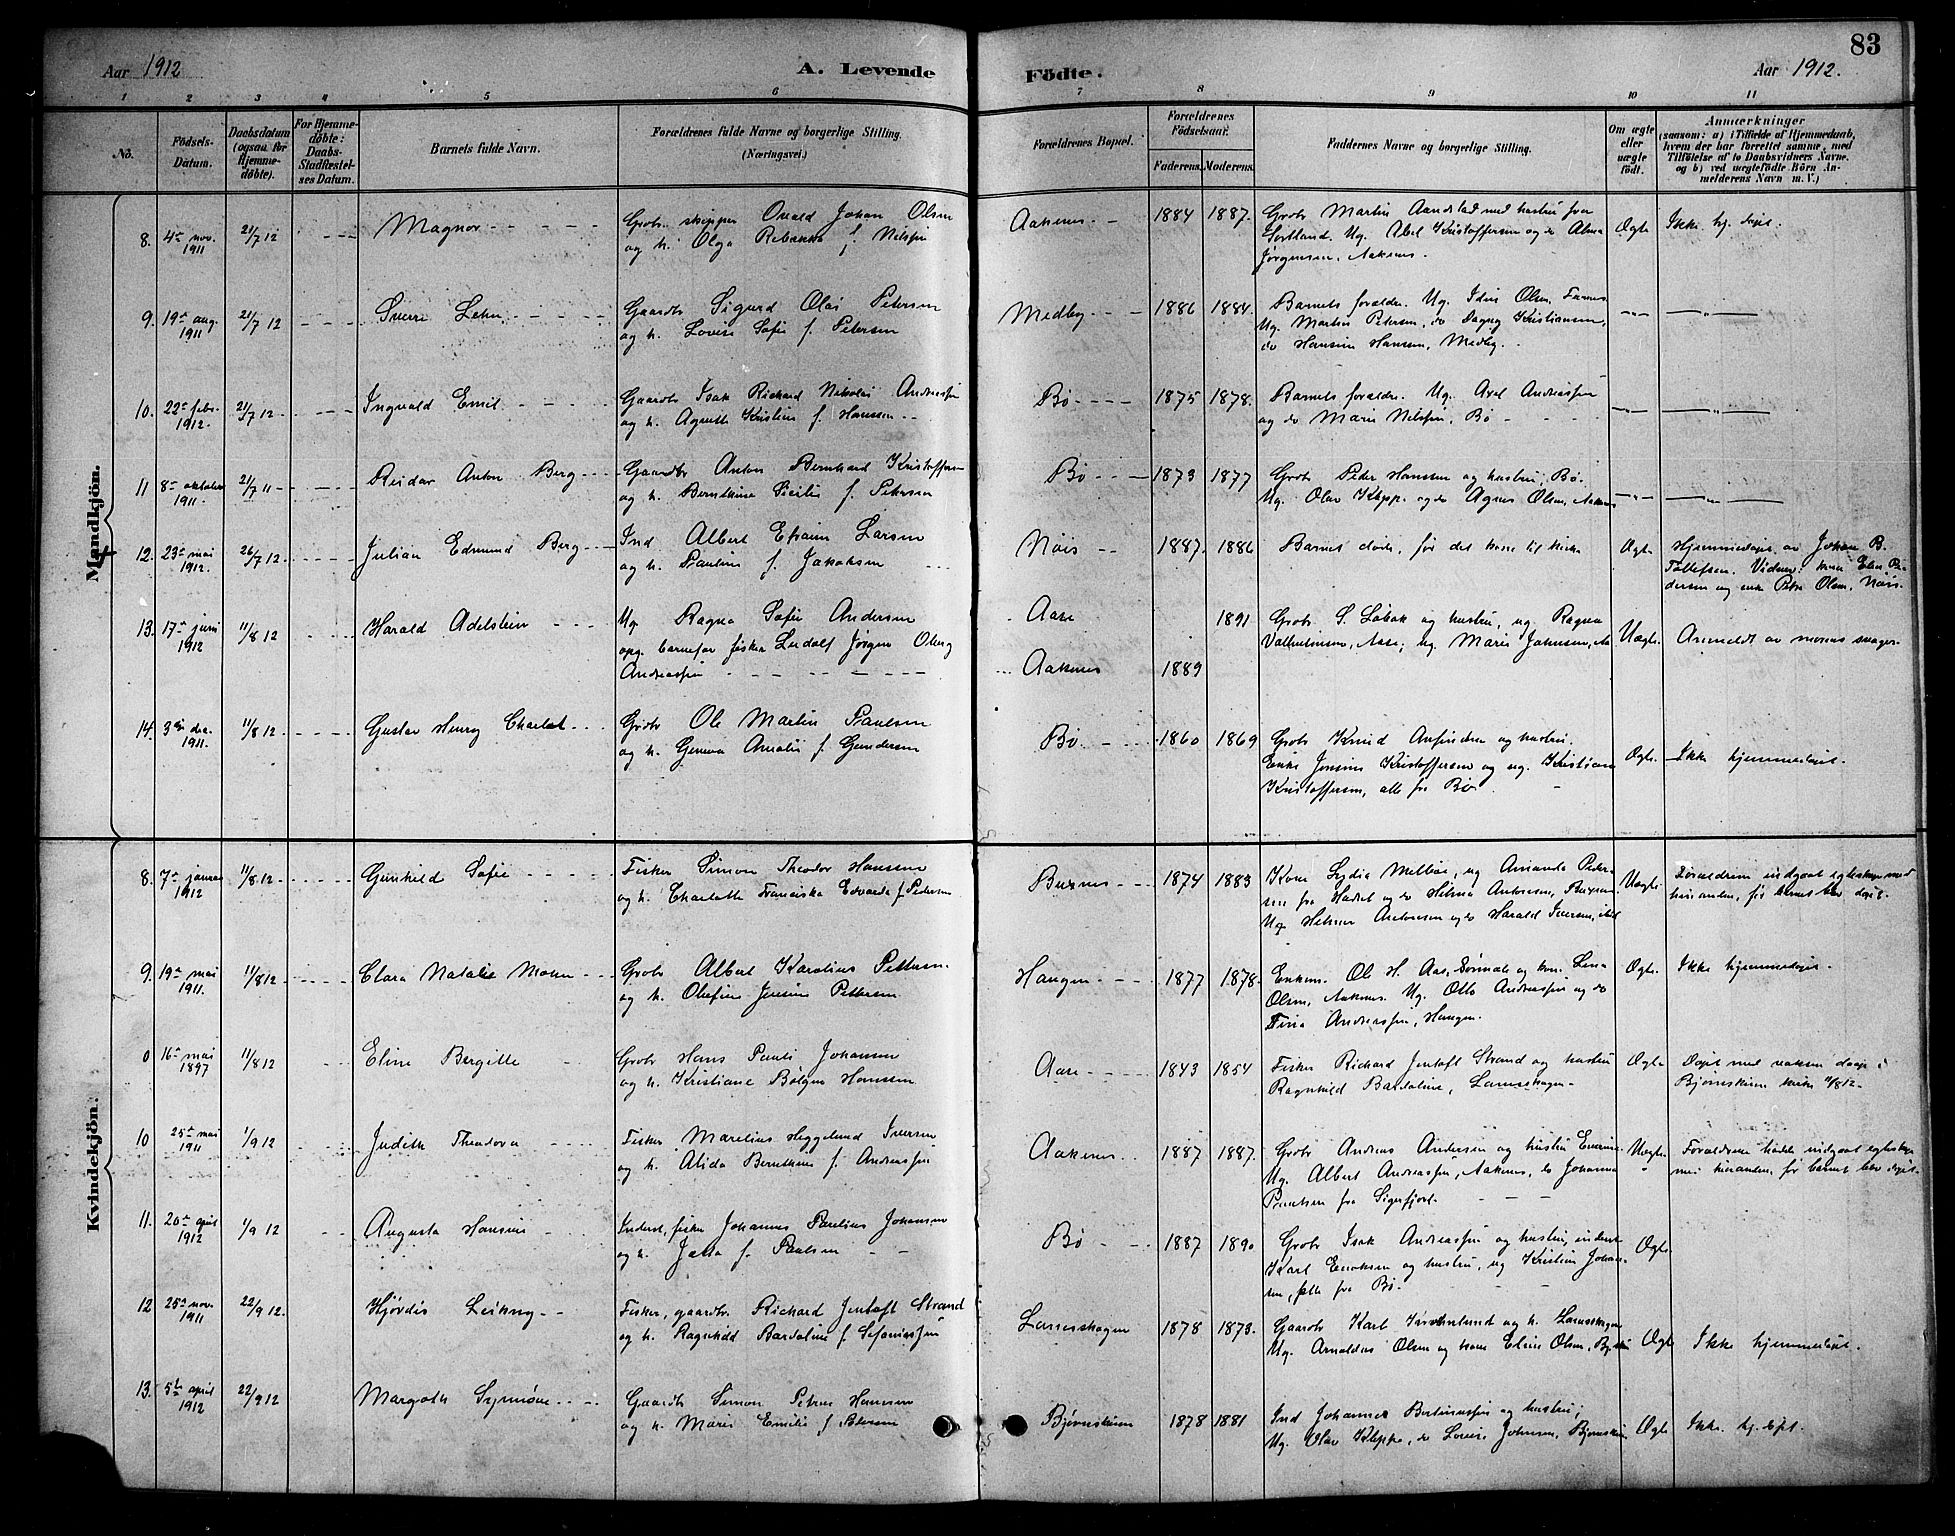 83
Aar 1912
A. Levende
Födte.
Aar 1912.
1 2 3 4 5 6 7 8 9 10 11
No.
Födsels-
Datum.
Daabsdatum
(ogsaa for
Hjemme-
døbte).
For Hjemme-
døbte:
Daabs-
Stadfæstel-
ses Datum.
Barnets fulde Navn.
Forældrenes fulde Navne og borgerlige Stilling.
(Næringsvei.)
Forældrenes Bopæl.
Forældrenes
Födselsaar.
Faderens.
Moderens.
Faddernes Navne og borgerlige Stilling.
Om ægte
eller
uægte
født.
Anmærkninger
(saasom: a) i Tilfælde af Hjemmedaab,
hvem der har forrettet samme, med
Tilföielse af to Daabsvidners Navne.
og b) ved uægtefödte Börn An-
melderens Navn m. V.)
Mandkjön.
8. 4de nov. 1911 21/7 12 Magnor
Grbr. skipper Ovald Johan Olsen
og h. Olga Rebekka f. Nilssen
Aaknes 1884 1887.
Grbr Martin Aandstad med hustru fra
Sortland. Ug. Abel Kristoffersen og do Alma
Jørgensen, Aaknes.
Ægte Ikke hj. døpt.
9. 19de aug. 1911 21/7 12 Sverre Lehn
Gaardbr Sigurd Olai Petersen
og h. Lovise Sofie f. Petersen
Medby 1886 1884.
Barnets forældre. Ug. Olsen,
Ug. Martin Petersen, do Dagny Kristiansen,
do Hansine Hansen, Medby.
10. 22de febr. 1912. 21/7 12 Ingvald Emil
Gaardbr Isak Richard Nikolai Andreassen
og h. Agnethe Kristine f. Hanssen
Bø 1875 1878.
Barnets forældre. Ug. Axel Andreassen
og do Marie Nilssen, Bø
11 8de oktober 1911. 21/7 11 Reidar Anton Berg
Gaardbr Anton Bernhard Kristoffersen
og h. Berntine Sicilie f. Petersen
Bø 1873 1877
Grbr Peter Hanssen og hustru, Bø.
Ug. Olav Klepp og do Agnes Olsen, Aaknes
12. 23de mai 1912. 26/7 12 Julian Edmund Berg
Ind Albert Efraim Larsen
og h. Pauline f. Jakobsen
Nöis 1887. 1886
Barnet døde, før det kom til kirke
Ægte Hjemmedøpt av Johan B.
Tollefsen. Vidner: kone Elen Pe-
dersen og enke Olsen, Nöis.
13. 17de juni 1912 11/8 12 Harald Adelstein
Ug Ragna Sofie Andersen
opg. barnefar fisker Ludolf Jørgen Oberg
Andreassen
Aase 1891
Aaknes 1889
Grbr S. Løbak og hustru, ug. Ragna
Valentinsen, Aase; ug. Marie Johnsen,
Uægte Anmeldt av morens svoger.
14. 3die dec. 1911. 11/8 12 Gustav Henry Charlot
Grbr Ole Martin Paulsen
og h. Geneva Amalie f. Gundersen
Bø. 1860 1869
Grbr Knud Anfindsen og hustru.
Enke Jensine Kristoffersen og ug. Kristian
Kristoffersen, alle fra Bø.
Ægte. Ikke hjemmedøpt.
Kvindekjön.
8. 7de januar 1912 11/8 12 Gunhild Sofie
Fisker Simon Theodor Hanssen
og h. Charlotte Franciska Edvarda f. Petersen
Buknes 1874 1883
Kone Lydia Melbøe, ug Amanda Peter-
sen fra Hadsel og do Helma Antonsen, Buknes
Ug. Helmer Antonsen og do Harald Iversen, ibid
Uægte Forældrene indgaat egteskap med
hinanden, før barnet blev døpt.
9. 19de mai 1911. 11/8 12 Clara Natalie Mohn
Grbr Albert Karolius Pettersen.
og h. Olufine Jensine Pettersen
Haugen 1877 1878.
Enkem. Ole H. Aas, Sørmale og kone Lina
Olsen, Aaknes. Ug. Otto Andreassen og do
Tina Andreassen, Haugen.
Ægte. Ikke hjemmedøpt.
0 16de mai 1897 11/8 12 Eline Bergitte
Grbr Hans Pauli Johansen
og h. Kristiane Bølgen Hanssen
Aase 1843 1854
Fisker Richard Jentoft Strand og hustru
Ragnhild Bardoline, Lanesskogen
Ægte Døpt med voksen daap i
Bjørnskinn kirke 11/8 12.
10 25de mai 1911 1/9 12 Judith Theodora
Fisker Marelius Heggelund Iversen
og h. Alida Bernthine f. Andreassen
Aaknes 1887 1887.
Grbr Andreas Andersen og hustru
Ug. Albert Andreassen, Aaknes, do Johanna
Paulsen fra Sigerfjord.
Uægte Forældrene hadde indgaat egteskap
med hinanden, før barnet blev døpt.
11. 20de april 1912 1/9 12 Augusta Hansine
Inderst, fisker Johannes Paulius Johansen
og h. Jetta f. Paulsen
Bø 1887 1890
Grbr Isak Andreassen og hustru, inderst
Karl Enoksen og hustru, ug Kristine Johan-
sen, alle fra Bø.
Ægte.
12 25de nov. 1911 22/9 12. Hjørdis Leikny
Fisker, gaardbr. Richard Jentoft Strand
og h. Ragnhild Bardoline f. Sefaniassen
Lanesskogen 1878 1878.
Gaardbr Karl og h. Lanesskogen
Ug. Arnoldus Olsen og kone Eline Olsen,
Ægte Ikke hjemmedøpt.
13. 5te april 1912 22/9 12 Margoth Synnøve
Gaardbr Simon Petrus Hanssen
og h. Marie Emilie f. Petersen
Bjørnskinn 1878 1881
Ind Johannes Bertinussen og hustru;
Ug. Olav Kleppe, do Lovise Johnsen, Bjørnskinn
Ægte Ikke. hj. døpt.